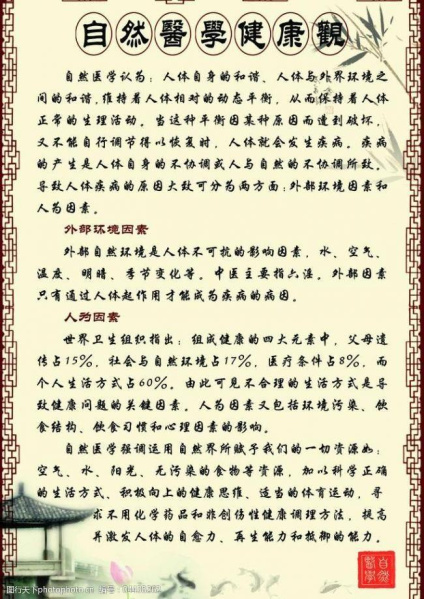 自然醫學健康觀
自然医学认为：人体自身的和谐、人体与外界环境之
间的和谐，维持着人体相对的动态平衡，从而保持着人体
正常的生理活动。当这种平衡因某种原因而遭到破坏，
又不能自行调节得以恢复时，人体就会发生疾病。疾病
的产生是人体自身的不协调或人与自然的不协调所致。
导致人体疾病的原因大致可分为两方面：外部环境因素和
人为因素。
外部环境因素
外部自然环境是人体不可抗的影响因素，水、空气、
温度、明暗、季节变化等。中医主要指六淫。外部因素
只有通过人体起作用才能成为疾病的病因。
人为因素
世界卫生组织指出：组成健康的四大元素中，父母遗
传占15%，社会与自然环境占17%，医疗条件占8%，而
个人生活方式占60%。由此可见不合理的生活方式是导
致健康问题的关键因素。人为因素又包括环境污染、饮
食结构、饮食习惯和心理因素的影响。
自然医学强调运用自然界所赋予我们的一切资源如：
空气、水、阳光、无污染的食物等资源，加以科学正确
的生活方式、积极向上的健康思维、适当的体育运动，寻
求不用化学药品和非创伤性健康调理方法，提高
并激发人体的自愈力、再生能力和抵御的能力。
自然
醫學
图行天下 photophoto.cn